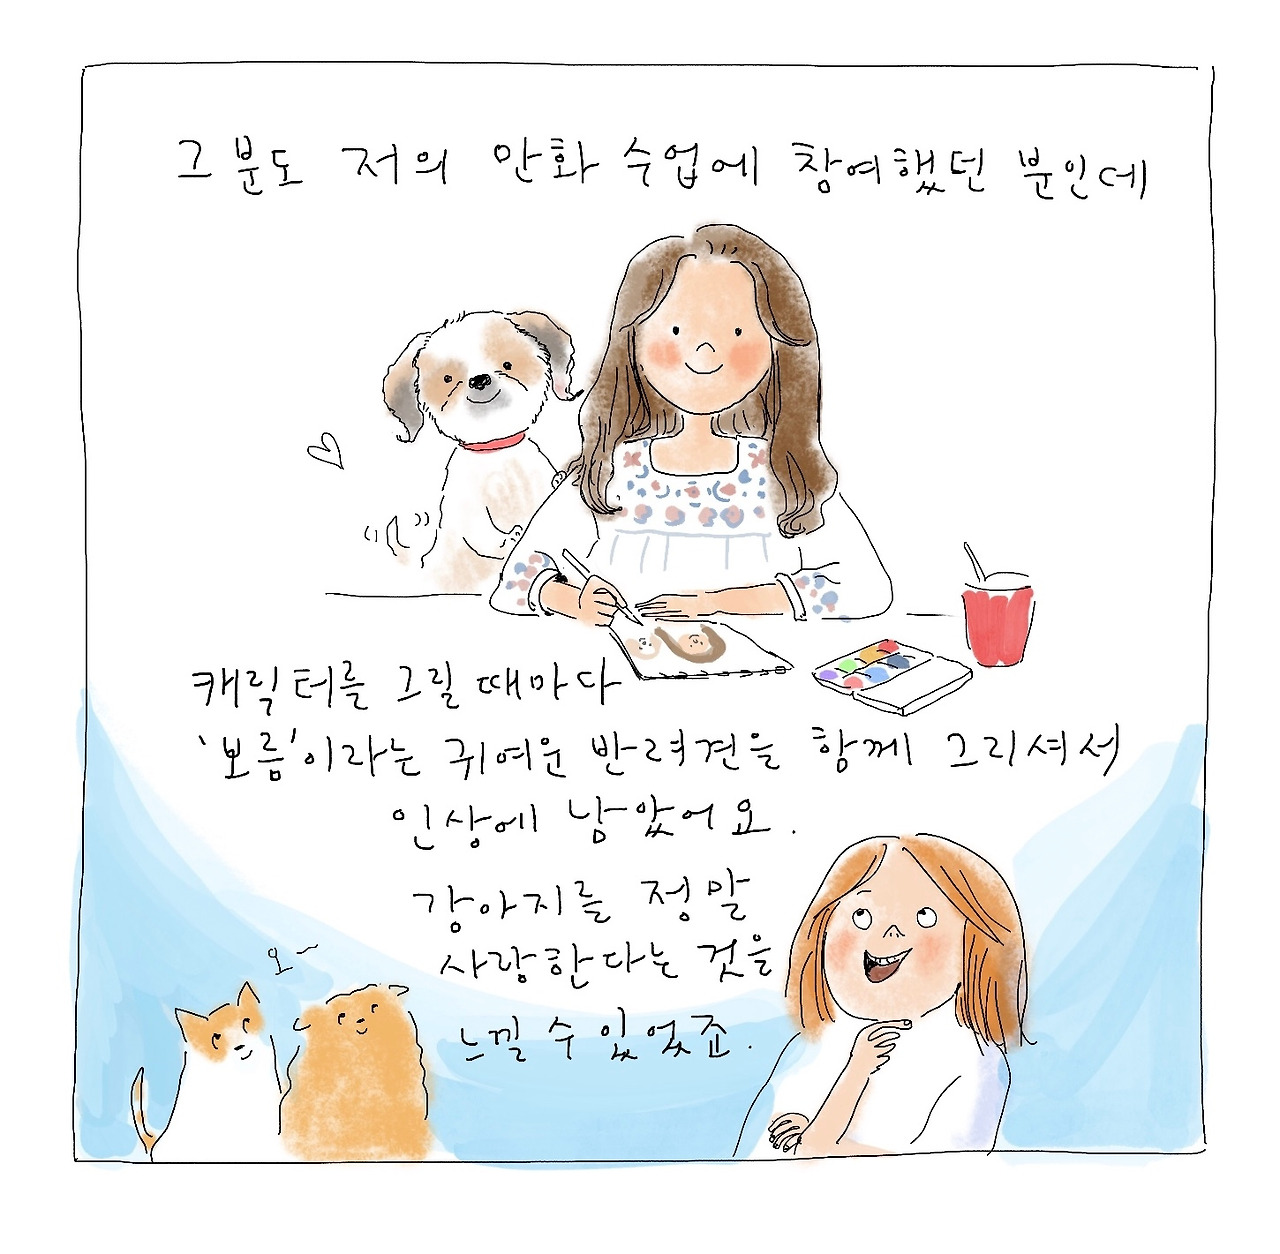 그분도 저의 만화 수업에 참여했던 분인데
캐릭터를 그릴 때마다
'보름'이라는 귀여운 반려견을 함께 그리셔서
인상에 남았어요.
강아지를 정말
사랑한다는 것을
느낄 수 있었죠.
오~